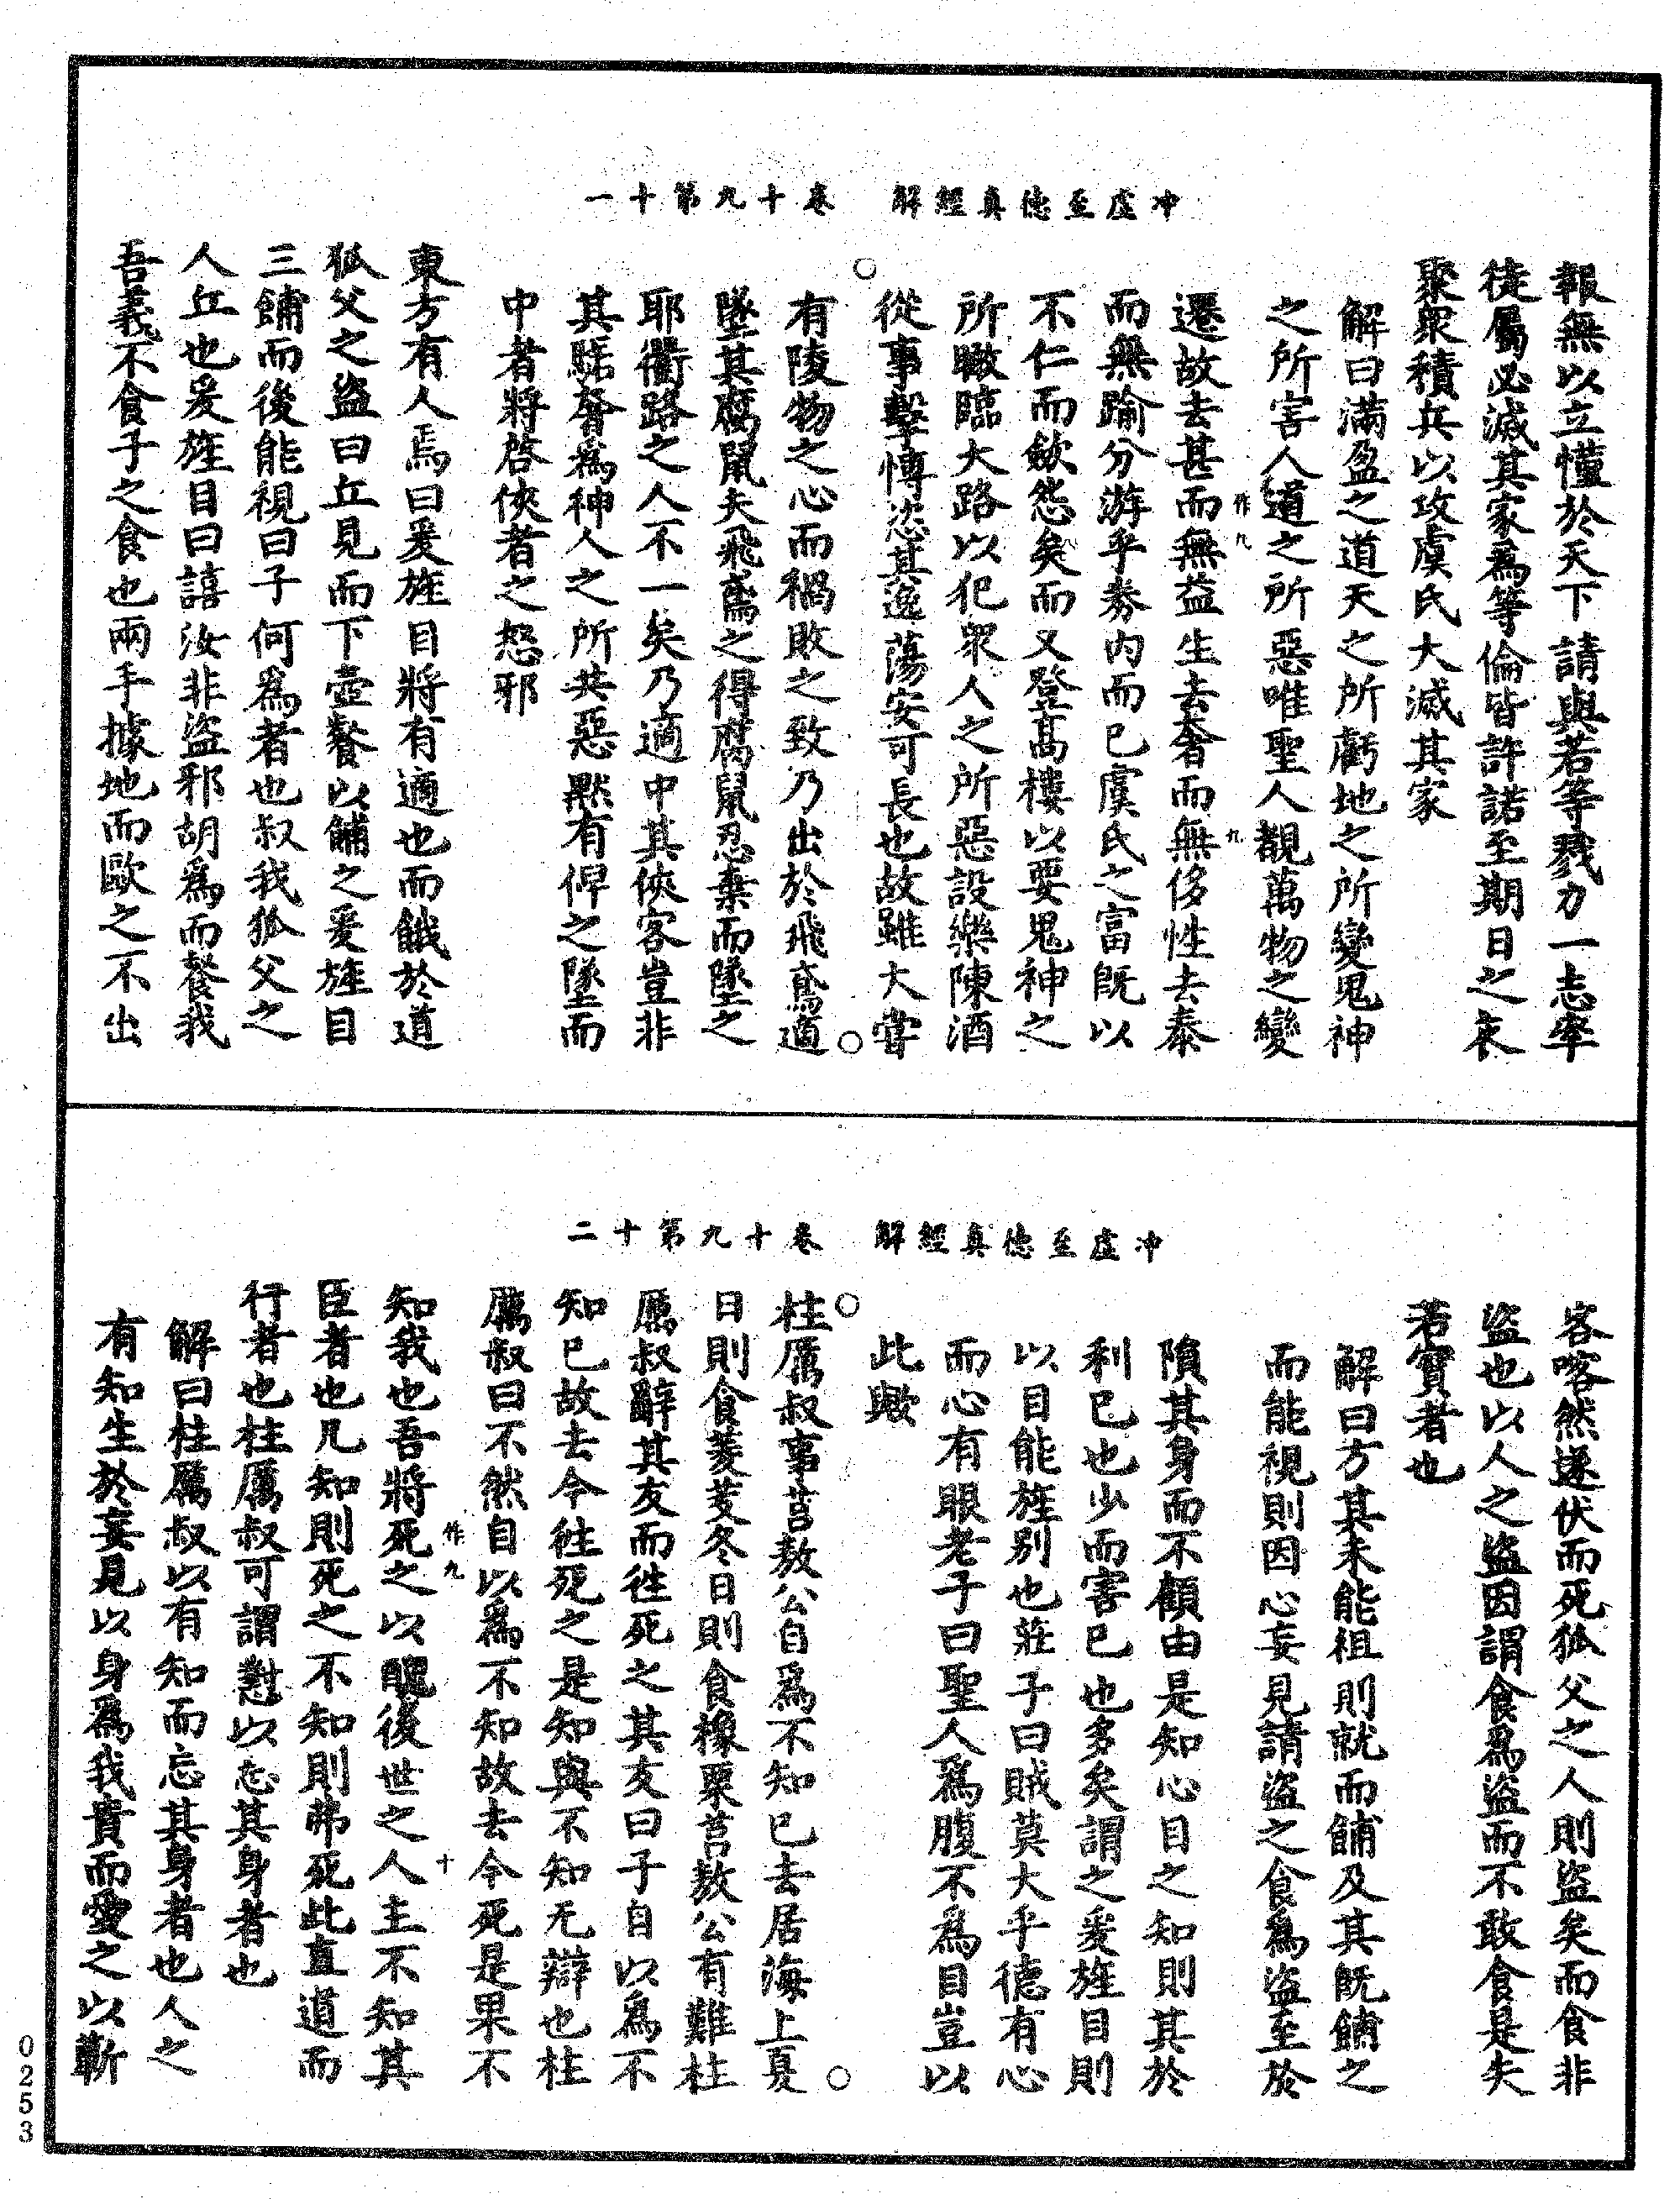 冲虛至德真經解　卷十九第十一
報無以立慬於天下請與若等戮力一志率
徒屬必滅其家爲等倫皆許諾至期日之夜
聚衆積兵以攻虞氏大滅其家
解曰滿盈之道天之所虧地之所變鬼神
之所害人道之所惡唯聖人覩萬物之變
作九
遷故去甚而無益生去奢而無侈性去泰
九
而無踰分游乎券內而已虞氏之富既以
不仁而斂怨矣而又登高樓以要鬼神之
所瞰臨大路以犯衆人之所惡設樂陳酒
從事擊博恣其逸蕩安可長也故雖大當
有陵物之心而禍敗之致乃出於飛鳶適
墜其腐鼠夫飛鳶之得腐鼠忍棄而墜之
耶衢路之人不一矣乃適中其俠客豈非
其驕奢爲神人之所共惡黙有俾之墜而
中者將啓俠者之怒邪
東方有人焉曰爰旌目將有適也而餓於道
狐父之盜曰丘見而下壺餐以餔之爰旌目
三餔而後能視曰子何爲者也叔我狐父之
人丘也爰旌目曰譆汝非盜邪胡爲而餐我
吾義不食子之食也兩手據地而歐之不出
冲虛至德真經解　卷十九第十二
客喀然遂伏而死狐父之人則盜矣而食非
盜也以人之盜因謂食爲盜而不敢食是失
若實者也
解曰方其未能徂則就而餔及其既餔之
而能視則因心妄見請盜之食爲盜至於
隕其身而不顧由是知心目之知則其於
利已也少而害已也多矣謂之爰旌目則
以目能旌別也莊子曰賊莫大乎德有心
而心有眼老子曰聖人爲腹不爲目豈以
此歟
柱厲叔事莒敖公自爲不知已去居海上夏
日則食菱芰冬日則食橡栗莒敖公有難柱
厲叔辭其友而徃死之其友曰子自以爲不
知已故去今徃死之是知與不知无辯也柱
厲叔曰不然自以爲不知故去今死是果不
知我也吾將死之以醜後世之人主不知其
作九
十
臣者也凡知則死之不知則弗死此直道而
行者也柱厲叔可謂懟以忘其身者也
解曰柱厲叔以有知而忘其身者也人之
有知生於妄見以身爲我貴而愛之以蘄
0253